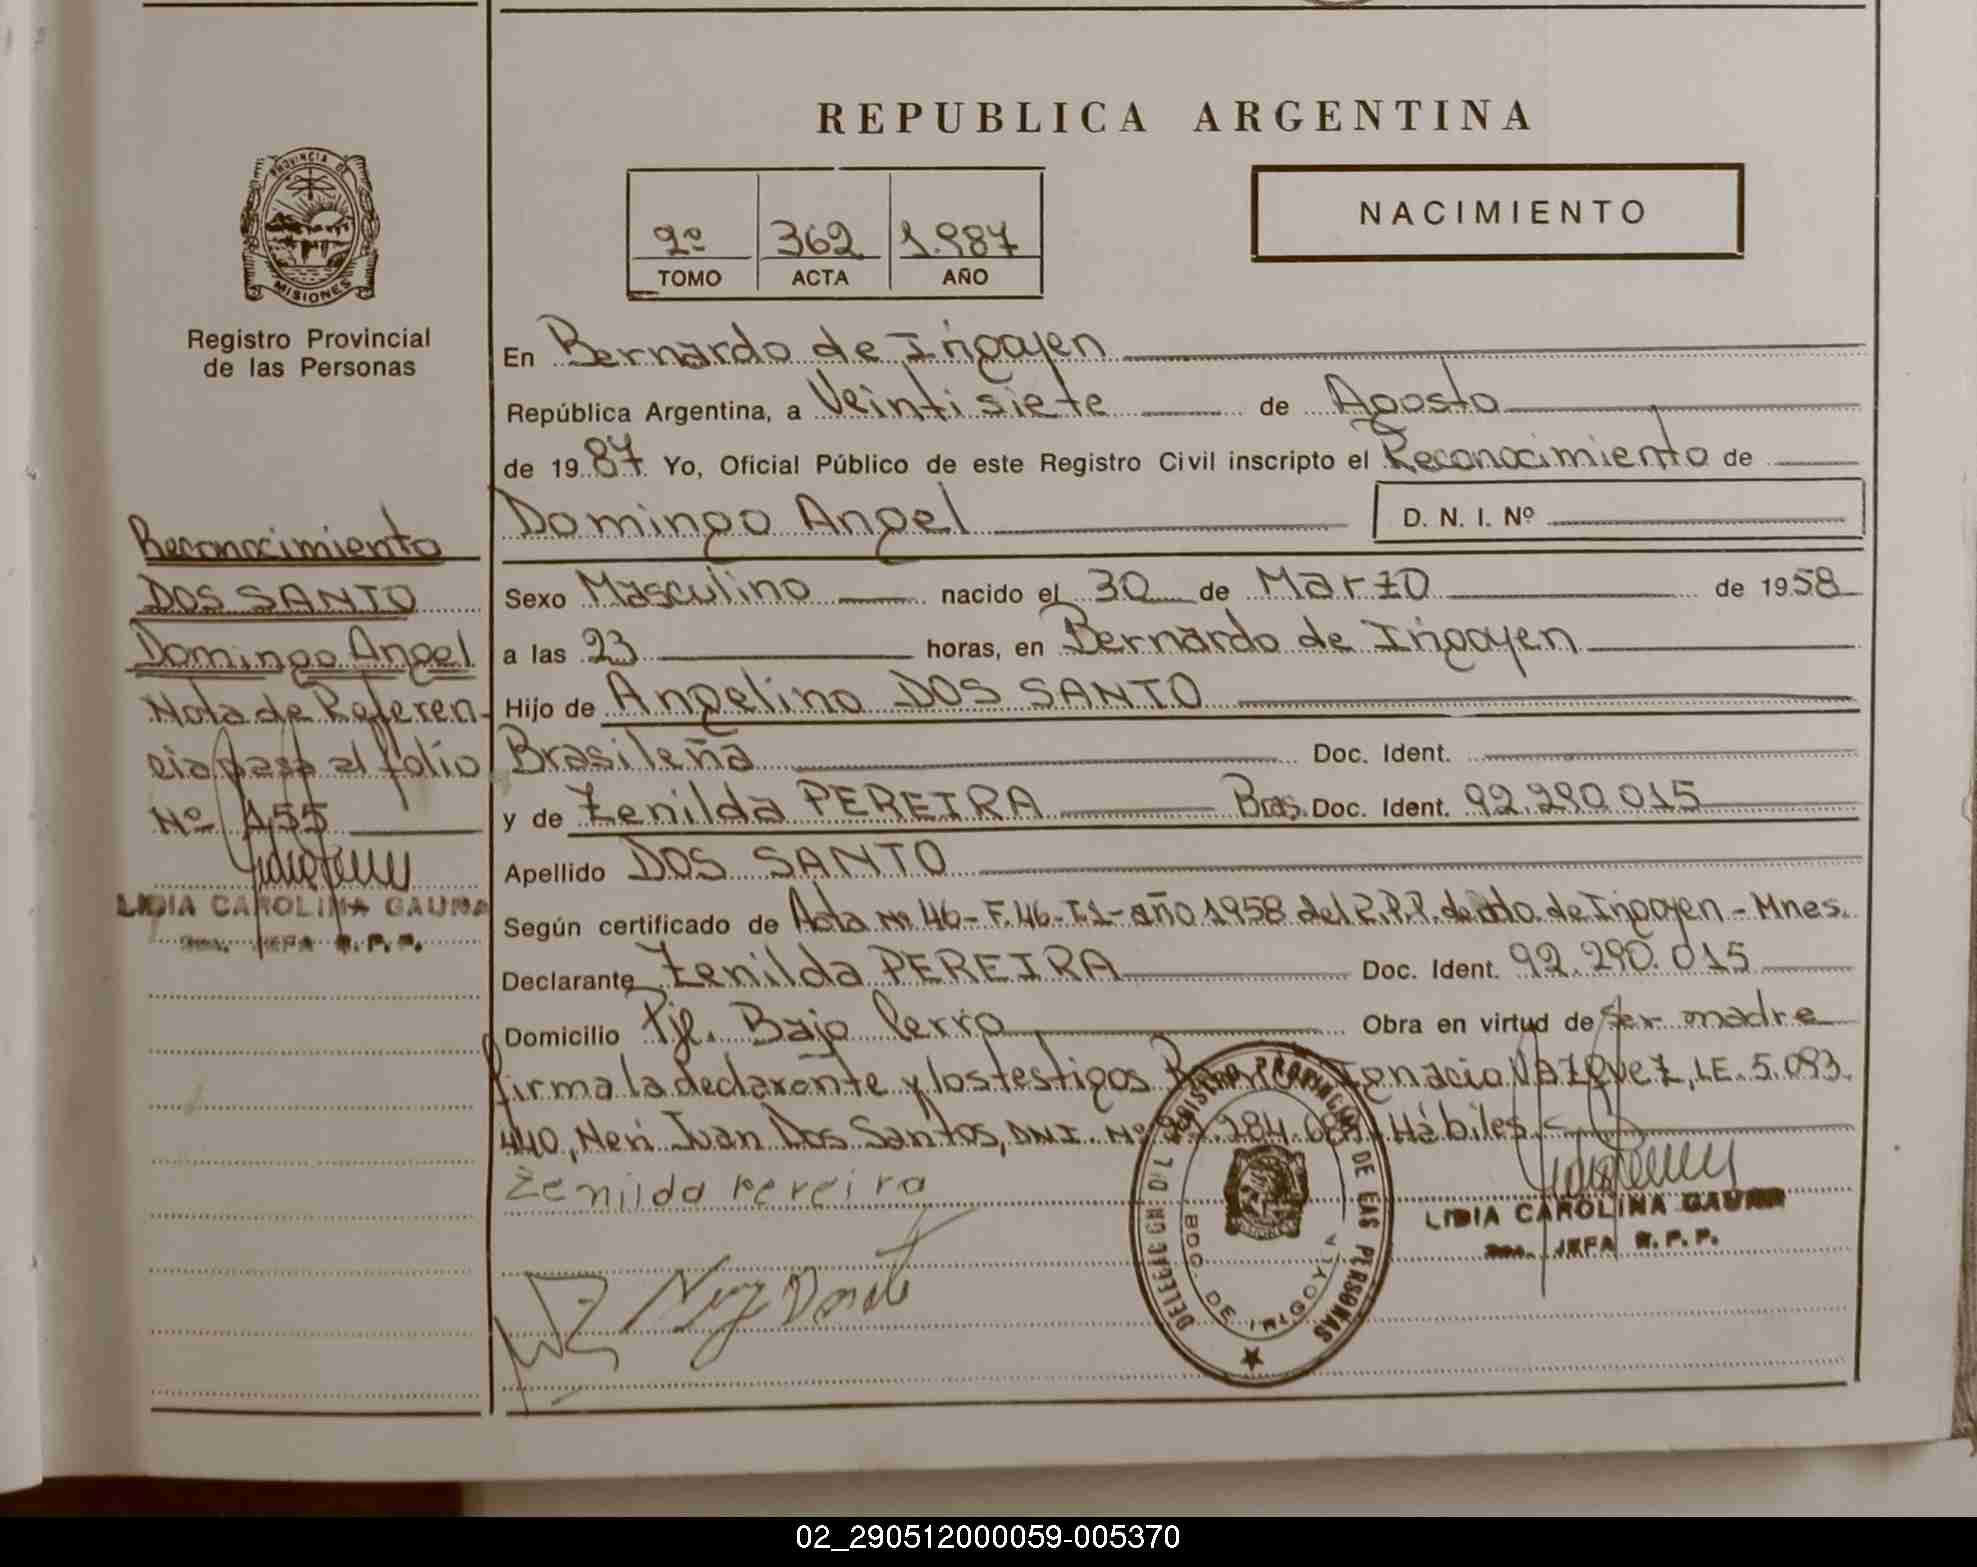 REPUBLICA ARGENTINA
PROVINCIA DE
MISIONES
Registro Provincial
de las Personas
2º 362 1.987
TOMO ACTA AÑO
NACIMIENTO
En Bernardo de Irigoyen
República Argentina, a Veintisiete de Agosto
de 1987 Yo, Oficial Público de este Registro Civil inscripto el Reconocimiento de
Domingo Angel
D. N. I. Nº
Reconocimiento
DOS SANTO
Domingo Angel
Nota de Referen-
cia pasa al folio
Nº 155
LIDIA CAROLINA GAUNA
JEFA R.P.P.
Sexo Masculino nacido el 30 de Marzo de 1958
a las 23 horas, en Bernardo de Irigoyen
Hijo de Angelino DOS SANTO
Brasileña Doc. Ident.
y de Zenilda PEREIRA Bras. Doc. Ident. 92.290.015
Apellido DOS SANTO
Según certificado de Acta Nº 46-F.46-T1-año 1958 del R.P.P. de Bdo. de Irigoyen - Mnes.
Declarante Zenilda PEREIRA Doc. Ident. 92.290.015
Domicilio Pje. Bajo Cerro Obra en virtud de ser madre
firma la declarante y los testigos Ignacio Vazquez, L.E. 5.093.
440, Neri Juan Dos Santos, DNI. Nº Hábiles
Zenilda Pereira
DELEGACION 7 REGISTRO PROVINCIAL DE LAS PERSONAS
BDO. DE IRIGOYEN
LIDIA CAROLINA GAUNA
JEFA R.P.P.
02_290512000059-005370